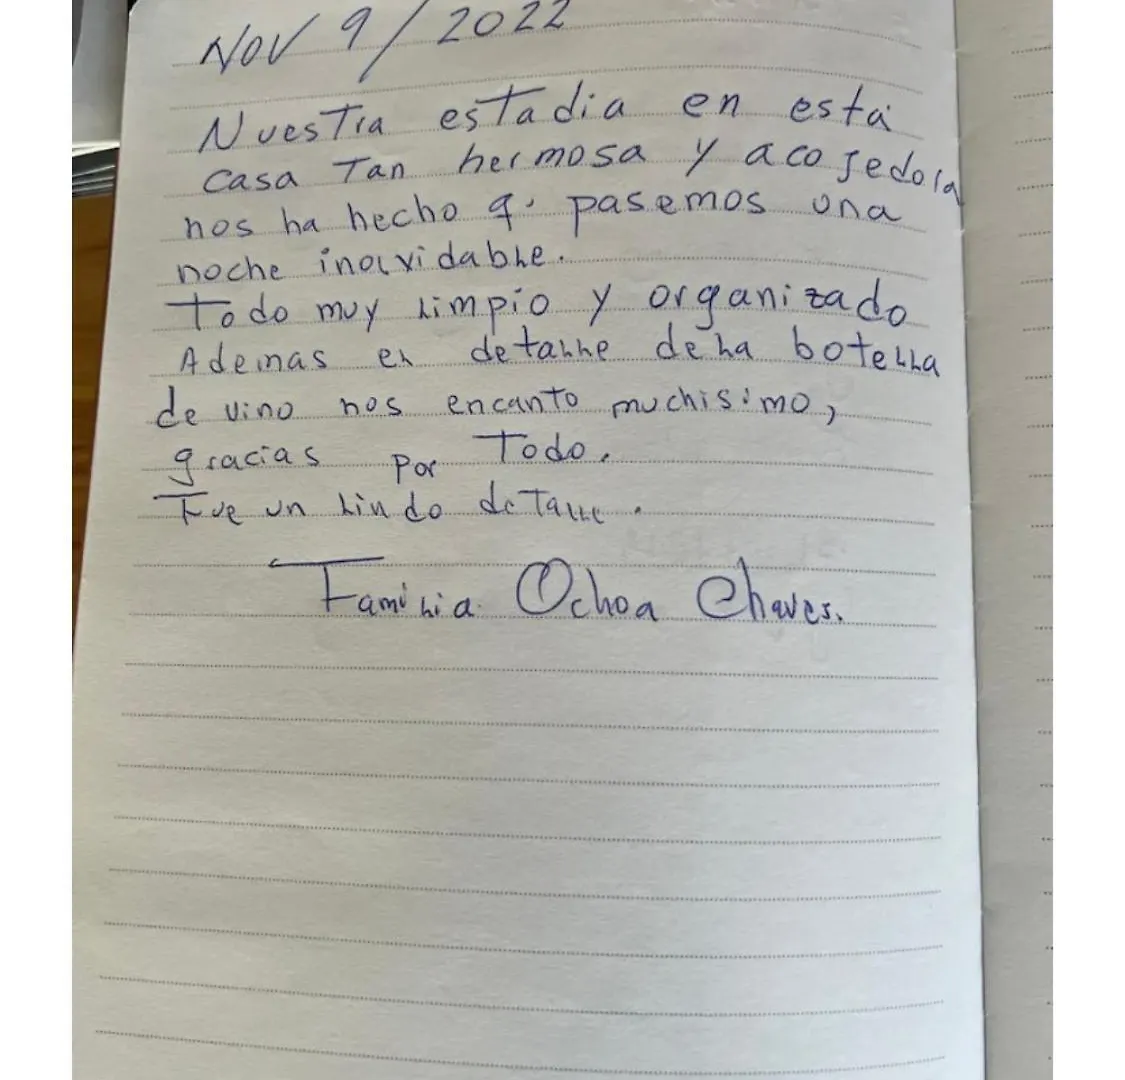 Nov 9/2022
Nuestra estadia en esta
casa Tan hermosa y acojedora
nos ha hecho q' pasemos una
noche inolvidable.
Todo muy Limpio y organizado
Ademas el detalle de la botella
de vino nos encanto muchisimo,
gracias por Todo.
Fue un Lindo detalle.
Familia Ochoa Chaves.